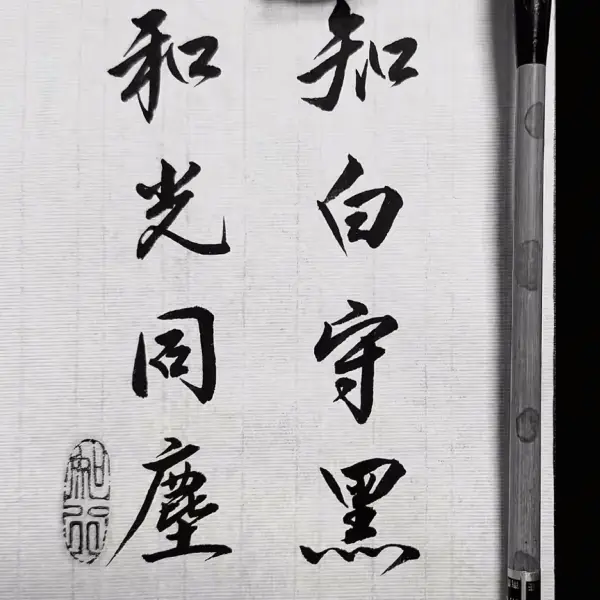 知白守黑
和光同塵